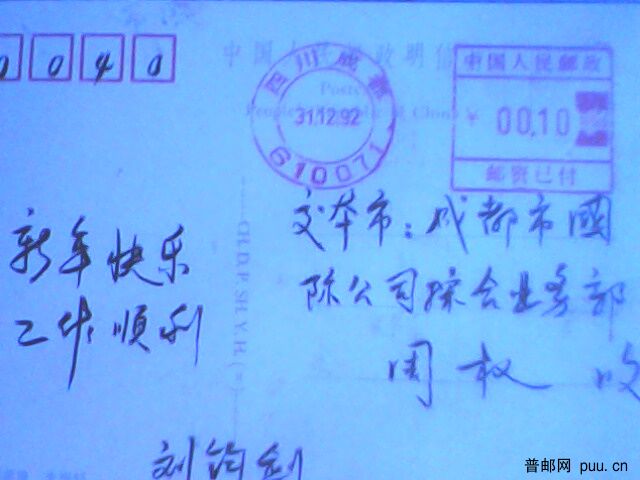 0040
中国人民邮政明信片
Postcard
People's Republic of China
四川成都
31.12.92
610071
中国人民邮政
¥ 00.10
邮资已付
交本市:成都市國
际公司综合业务部
周权 收
新年快乐
工作順利
刘钧剑
普邮网 puu.cn